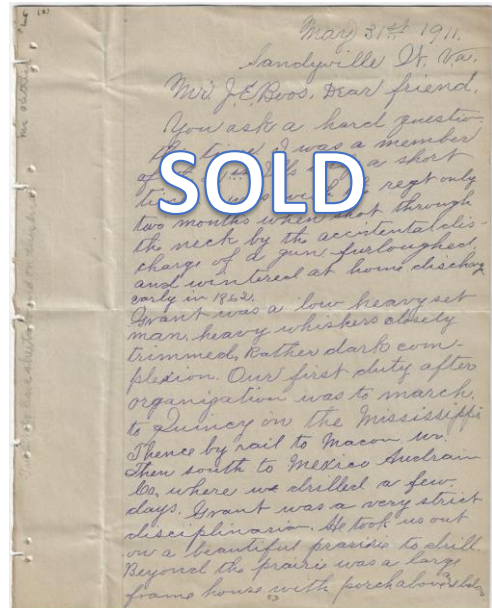 May 31st 1911.
Sandyville W. Va.
Mr. J. E. Boos, Dear friend,
You ask a hard questio-
I was a member
of a short
SOLD
regt only
two months when shot through
the neck by the accidental dis-
charge of a gun furloughed
and wintered at home discharg
early in 1862.
Grant was a low heavy set
man, heavy whiskers closely
trimmed, Rather dark com-
plexion. Our first duty after
organization was to march
to Quincy on the Mississippi
Thence by rail to Macon
Then south to Mexico Audrain
Co, where we drilled a few
days. Grant was a very strict
disciplinarian. He took us out
on a beautiful prairie to drill
Beyond the prairie was a large
frame house with porch above